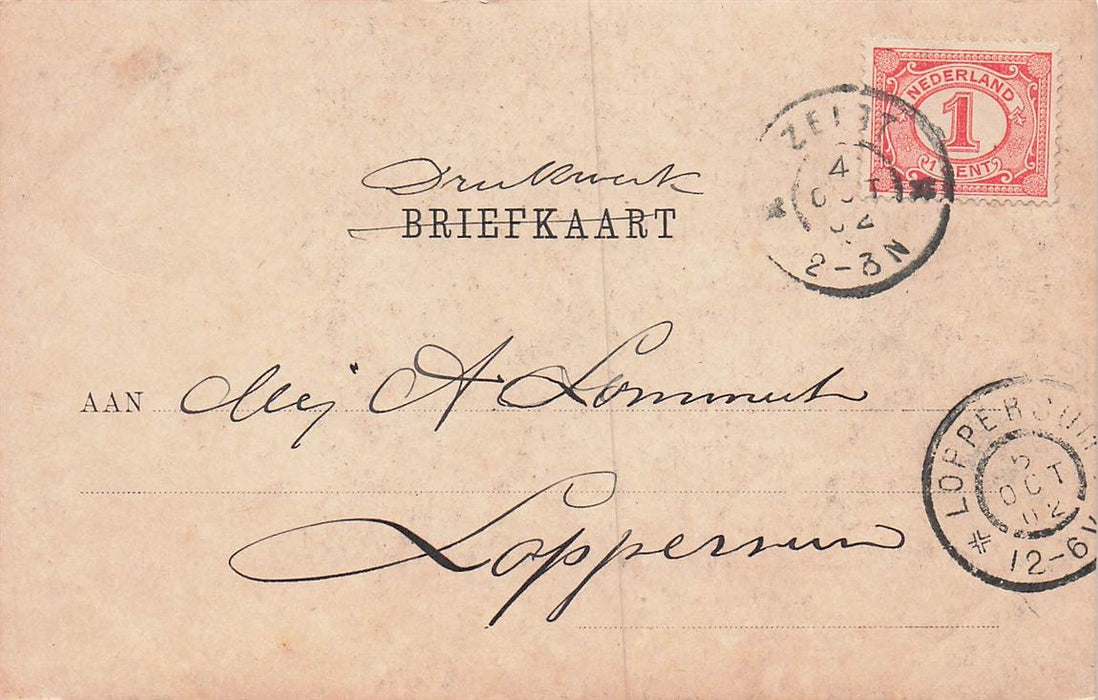 NEDERLAND
1
1 CENT
ZEIST
4
OCT
02
2-3N
Drukwerk
BRIEFKAART
AAN Mej A Lommert
Loppersum
LOPPERSUM
5
OCT
02
12-6V